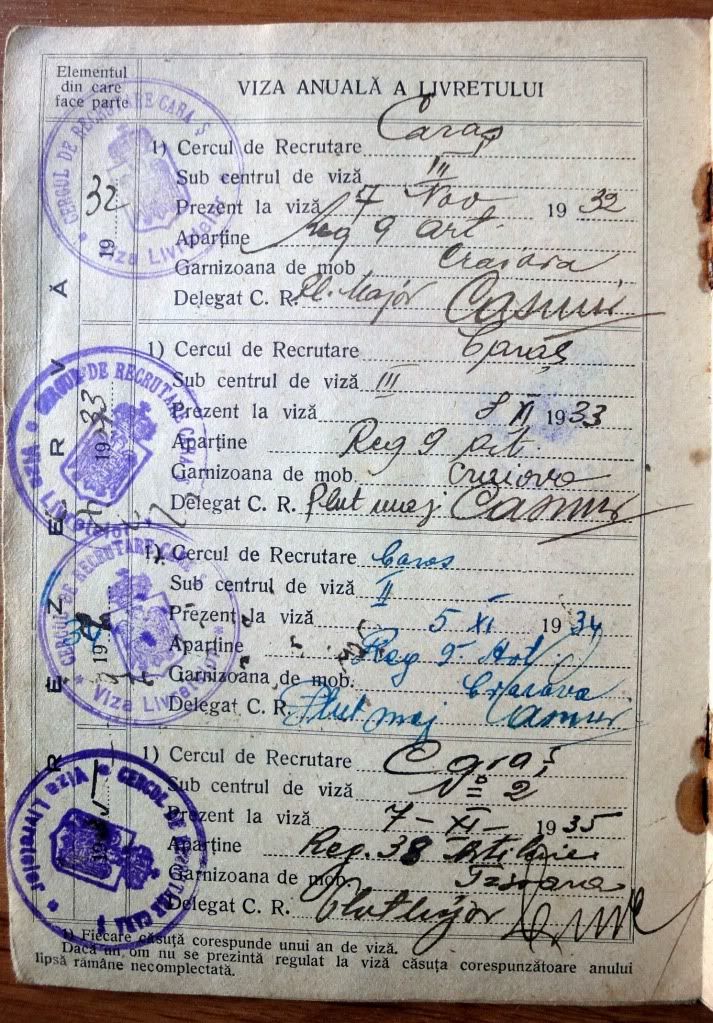 Elementul
din care
face parte
VIZA ANUALĂ A LIVRETULUI
REZERVĂ
CERCUL DE RECRUTARE CARAȘ
Viza Livretelor
19 32
1) Cercul de Recrutare Caraș
Sub centrul de viză III
Prezent la viză 7 Nov 19 32
Aparține Reg 9 art.
Garnizoana de mob Craiova
Delegat C. R. Pl. Major Casmir
CERCUL DE RECRUTARE CARAȘ
Viza Livretelor
19 33
1) Cercul de Recrutare Caraș
Sub centrul de viză III
Prezent la viză 8 XI 19 33
Aparține Reg 9 art.
Garnizoana de mob. Craiova
Delegat C. R. Plut maj Casmir
CERCUL DE RECRUTARE CARAȘ
Viza Livretelor
19 34
1) Cercul de Recrutare Caras
Sub centrul de viză II
Prezent la viză 5 XI 19 34
Aparține Reg 9 Art
Garnizoana de mob. Craiova
Delegat C. R. Plut maj Casmir
CERCUL DE RECRUTARE CARAȘ
Viza Livretelor
19
1) Cercul de Recrutare Caraș
Sub centrul de viză No 2
Prezent la viză 7-XI- 19 35
Aparține Reg. 38
Garnizoana de mob.
Delegat C. R. Plut major
1) Fiecare căsuță corespunde unui an de viză.
Dacă un om nu se prezintă regulat la viză căsuța corespunzătoare anului
lipsă rămâne necomplectată.